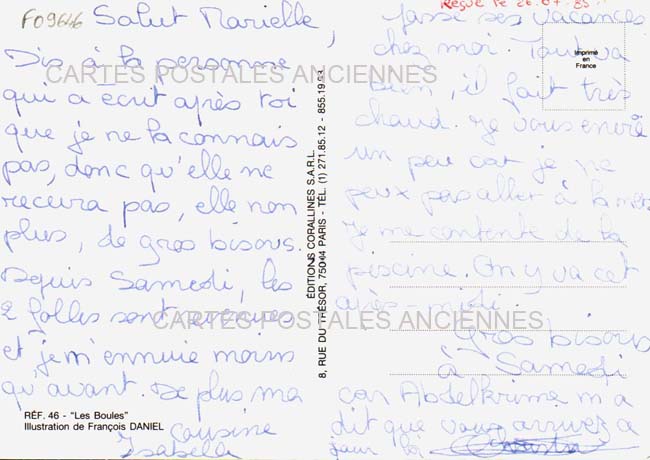 F09646
Salut Marielle,
Dis à la personne
qui a écrit après toi
que je ne la connais
pas, donc qu'elle ne
recevra pas, elle non
plus, de gros bisous.
Depuis Samedi, les
2 folles sont arrivées
et je m'ennuie moins
qu'avant. De plus ma
cousine
Isabelle
RÉF. 46 - "Les Boules"
Illustration de François DANIEL
CARTES POSTALES ANCIENNES
CARTES POSTALES ANCIENNES
ÉDITIONS CORALLINES S.A.R.L.
8, RUE DU TRÉSOR, 75004 PARIS - TÉL. (1) 271.85.12 - 855.19.63
Reçue le 26.07.85
Imprimé
en
France
passe ses vacances
chez moi. Tout va
bien, il fait très
chaud. Je vous envie
un peu car je ne
peux pas aller à la mer
Je me contente de la
piscine. On y va cet
après-midi.
Gros bisous
à Samedi
car Abdelkrime m'a
dit que vous arrivez à
jour là